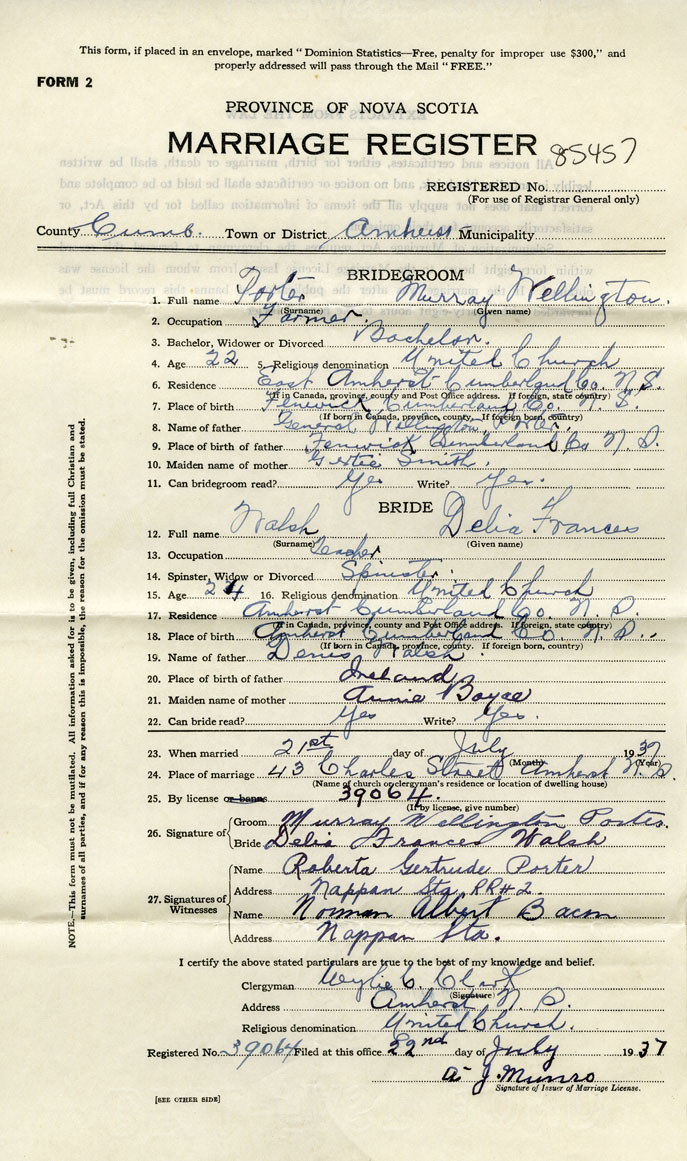 This form, if placed in an envelope, marked "Dominion Statistics—Free, penalty for improper use $300," and
properly addressed will pass through the Mail "FREE."
FORM 2
PROVINCE OF NOVA SCOTIA
MARRIAGE REGISTER 85457
REGISTERED No.
(For use of Registrar General only)
County Cumb. Town or District Amherst Municipality
BRIDEGROOM
1. Full name Porter Murray Wellington.
(Surname) (Given name)
2. Occupation Farmer.
3. Bachelor, Widower or Divorced Bachelor.
4. Age 22 5. Religious denomination United Church
6. Residence East Amherst Cumberland Co. N. S.
(If in Canada, province, county and Post Office address. If foreign, state country)
7. Place of birth Fenwick Cumberland Co. N. S.
(If born in Canada, province, county. If foreign born, country)
8. Name of father General Wellington Porter.
9. Place of birth of father Fenwick Cumberland Co N. S.
10. Maiden name of mother Gertie Smith.
11. Can bridegroom read? Yes Write? Yes.
BRIDE
12. Full name Walsh Delia Frances
(Surname) (Given name)
13. Occupation Teacher
14. Spinster, Widow or Divorced Spinster.
15. Age 24 16. Religious denomination United Church
17. Residence Amherst Cumberland Co. N. S.
(If in Canada, province, county and Post Office address. If foreign, state country)
18. Place of birth Amherst Cumberland Co. N. S.
(If born in Canada, province, county. If foreign born, country)
19. Name of father Denis Walsh.
20. Place of birth of father Ireland
21. Maiden name of mother Annie Boyce
22. Can bride read? Yes Write? Yes.
23. When married 21st day of July 1937
(Month) (Year)
24. Place of marriage 43 Charles Street Amherst N. S.
(Name of church or clergymen's residence or location of dwelling house)
25. By license or banns 39064.
(If by license, give number)
26. Signature of
Groom Murray Wellington Porter.
Bride Delia Frances Walsh
27. Signatures of Witnesses
Name Roberta Gertrude Porter
Address Nappan Sta. RR#2.
Name Norman Albert Bacon
Address Nappan Sta.
I certify the above stated particulars are true to the best of my knowledge and belief.
Clergyman Wylie C. Clark
(Signature)
Address Amherst N. S.
Religious denomination United Church.
Registered No. 39064 Filed at this office 22nd day of July 1937
A. J. Munro
Signature of Issuer of Marriage License.
[SEE OTHER SIDE]
NOTE.—This form must not be mutilated. All information asked for is to be given, including full Christian and
surnames of all parties, and if for any reason this is impossible, the reason for the omission must be stated.